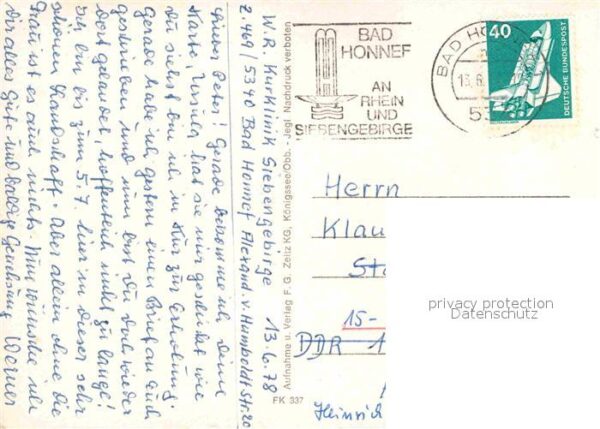 W.R. Kurklinik Siebengebirge 13.6.78
Z.469/5340 Bad Honnef Alexand. v. Humboldt Str. 20
Lieber Peter! Gerade bekomme ich deine
Karte. Ursula hat sie mir geschickt wie
du siehst bin ich in Kur zur Erholung.
Gerade habe ich gestern einen Brief an Euch
geschrieben und nun bist du doch wieder
dort gelandet, hoffentlich nicht zu lange!
Ich bin bis zum 5.7. hier in dieser sehr
schönen Landschaft. Aber allein ohne die
Frau ist es auch nichts. Nun wünsche ich
dir alles Gute und baldige Genesung Werner
Aufnahme u. Verlag F. G. Zeitz KG, Königssee/Obb. - Jegl. Nachdruck verboten
FK 337
BAD
HONNEF
AN
RHEIN
UND
SIEBENGEBIRGE
BAD HO
13.6.
53
40
DEUTSCHE BUNDESPOST
Herrn
Klau
St
15-
DDR 1
Heinrich
privacy protection
Datenschutz